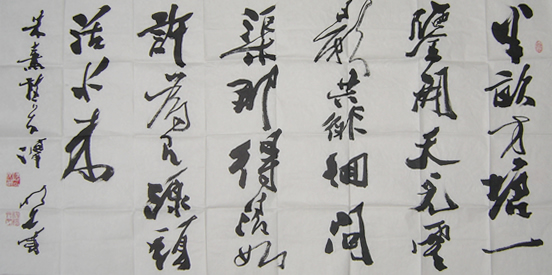 半畝方塘一
鑒開天光雲
影共徘徊問
渠那得清如
許為有源頭
活水來
朱熹